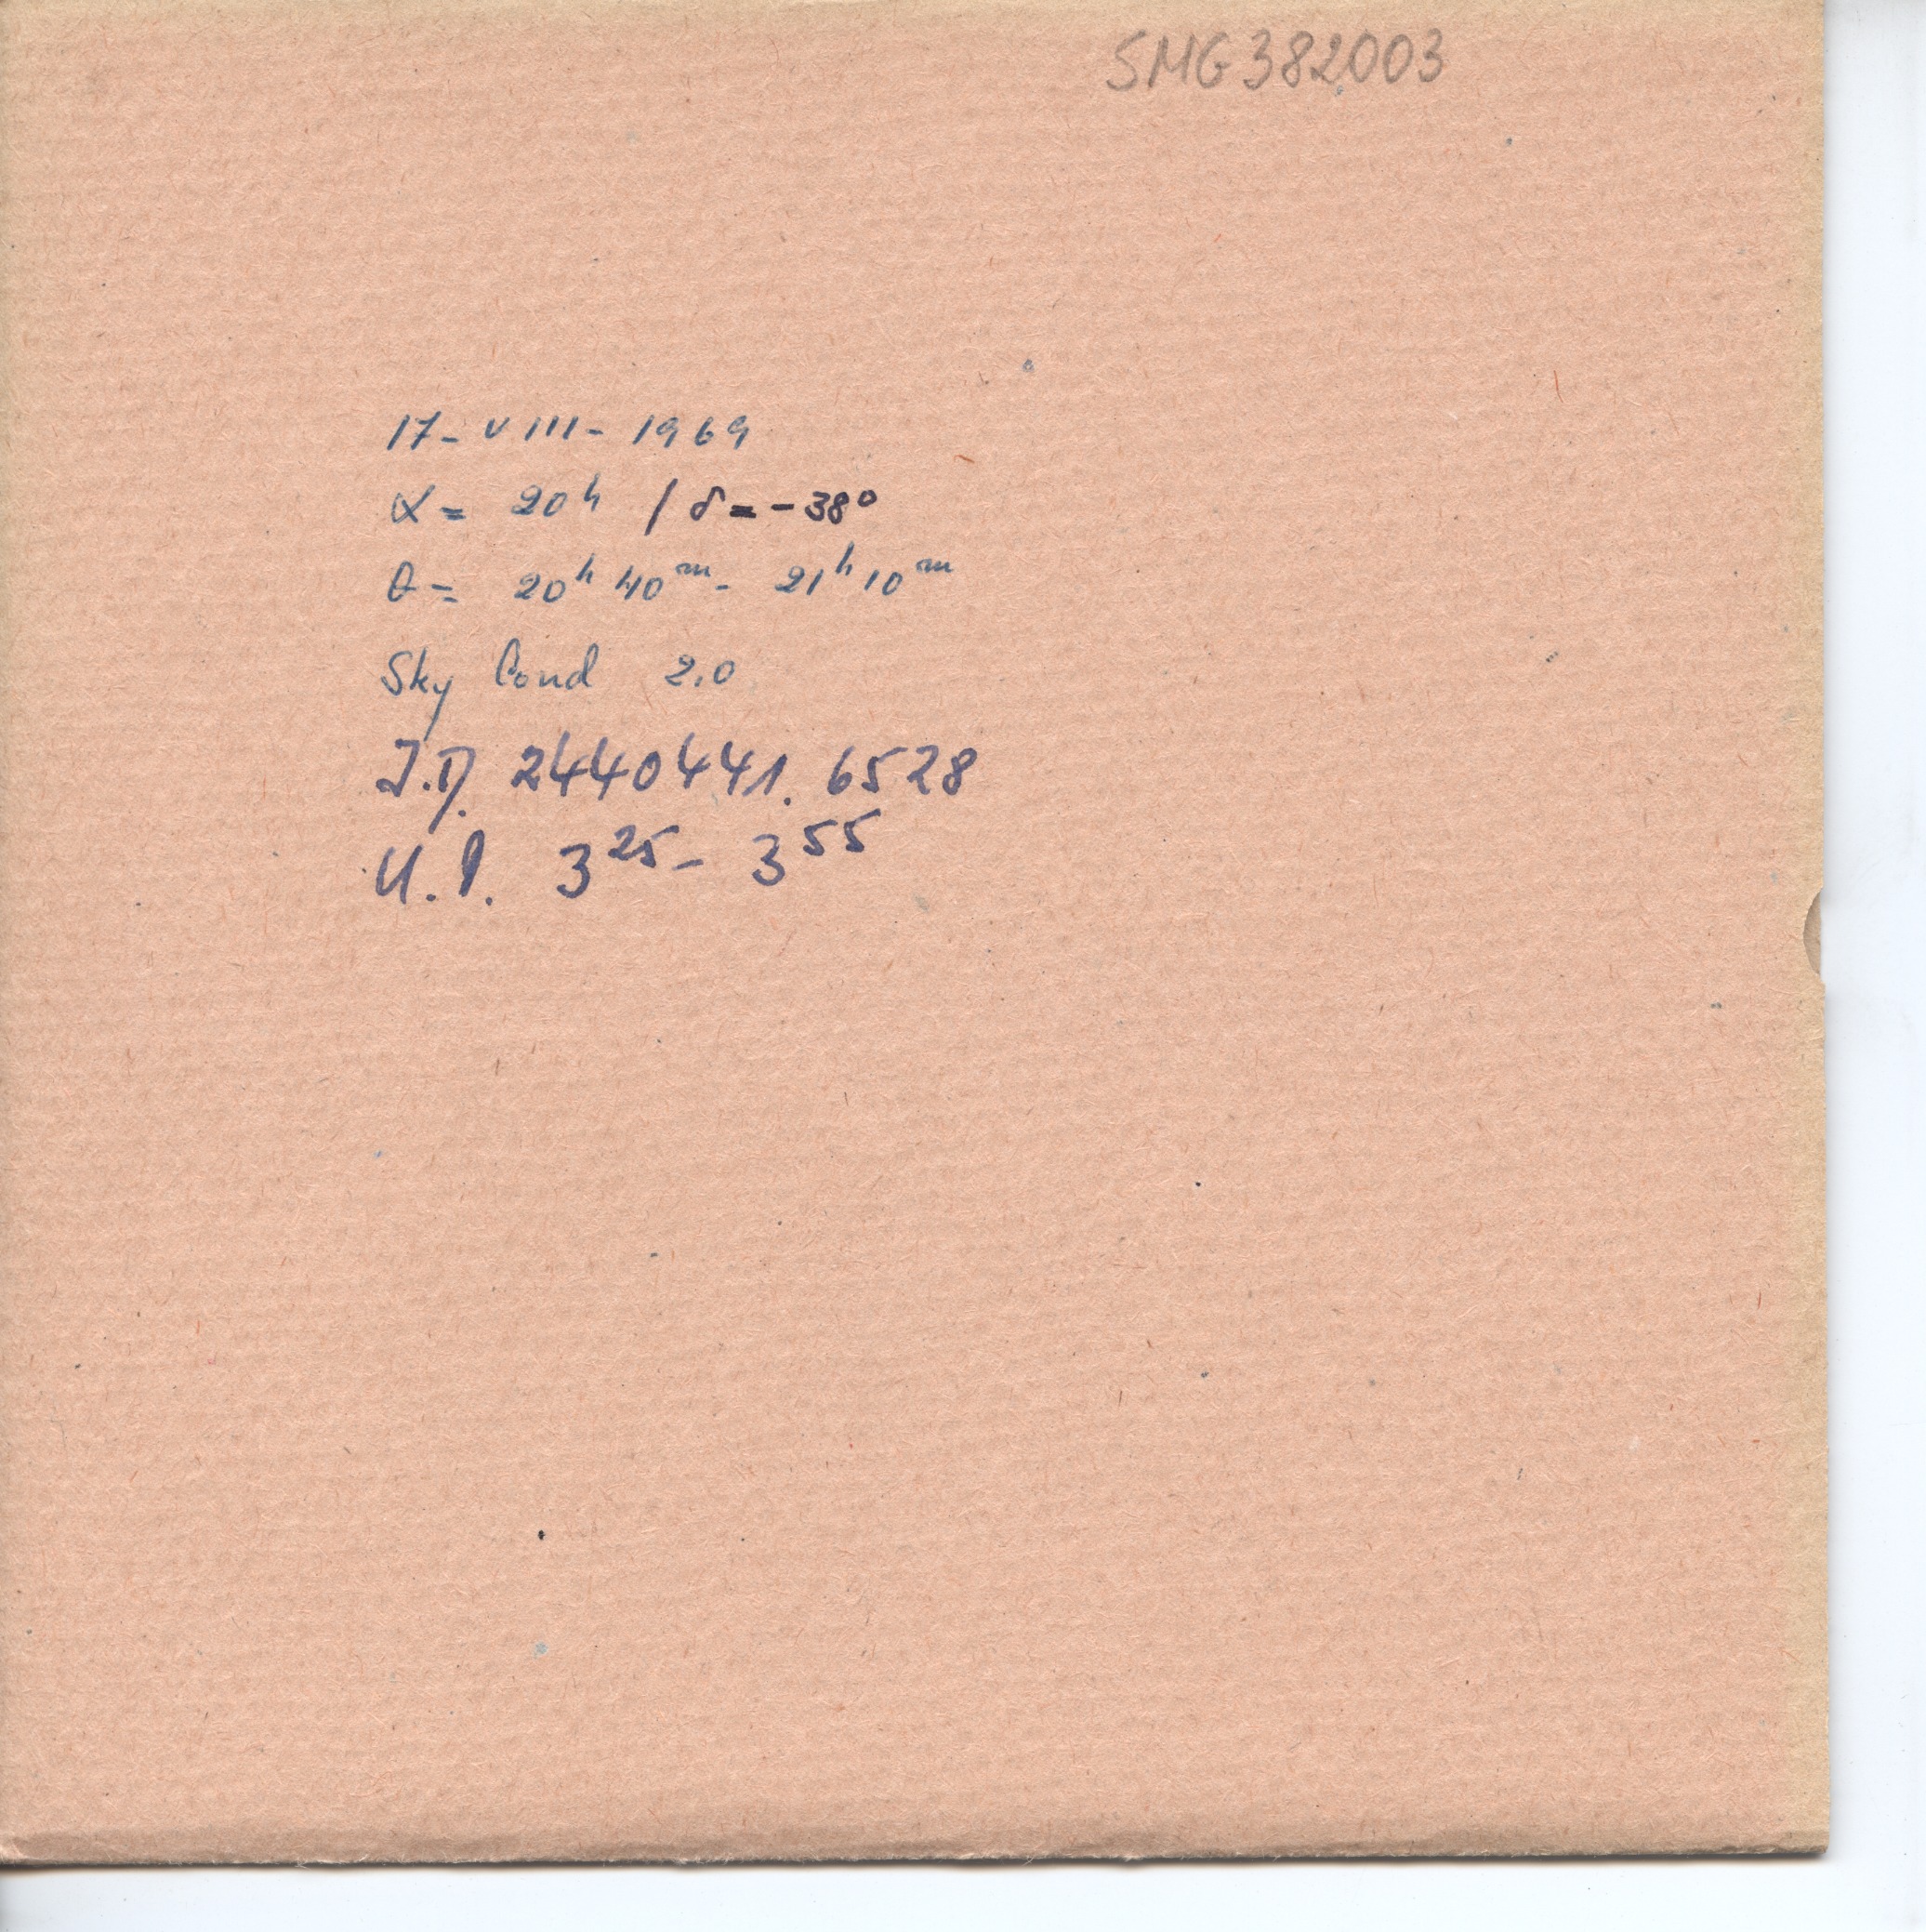 SMG382003
17-VIII-1969
α= 20ʰ / δ=-38°
θ= 20ʰ 40ᵐ- 21ʰ 10ᵐ
Sky Cond 2.0
J.D. 2440441.6528
U.T. 3²⁵- 3⁵⁵